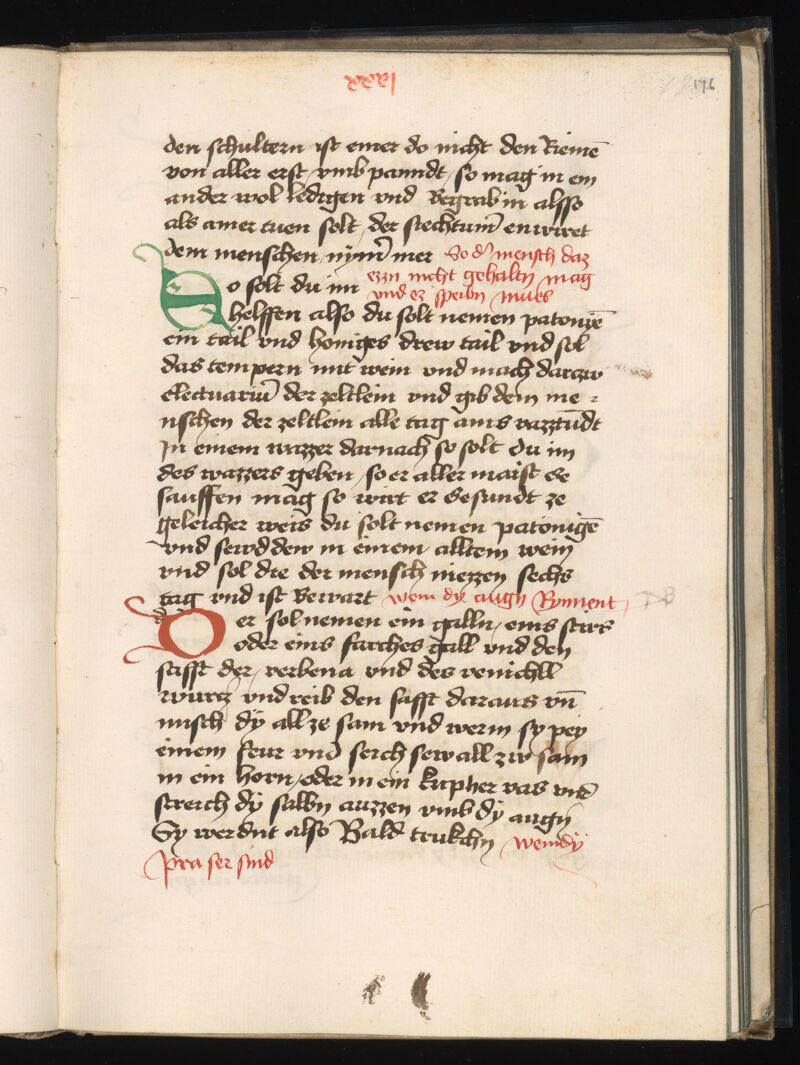 xxxi
den schultern ist einer do nicht den Riemē
von aller erst vmb panndt so mag in ein
ander wol ledigen vnd Begrabin alsso
als ainer tuen solt der siechtum̄ enwiret
dem menschen nym̄ mer So d' mensch daz
ezzn nicht gehaltn mag
So solt du im vnd ez speibn mues
helffen also du solt nemen patonigē
ein tail vnd honiges drew tail vnd sol
das tempern mit wein vnd mach darzw
electuariū der zeltlein vnd gib dem me-
nschen der zeltlein alle tag ains vazztūdt
In einem wazzer darnach so solt du im
des wazzers geben so er aller maist Ge
sauffen mag so wirt er Gesundt ze
geleicher weis du solt nemen patonigē
vnd sewd den in einem alltem wein
vnd sol die der mensch niezzen sechs
tag vnd ist Bewart wem dy augn Rynnent
Der sol nemen ein galln eins stirs
oder eins farches gall vnd den
safft der verbena vnd des venichll
wurcz vnd reib den safft daraus vn̄
misch dy all ze sam vnd werm sy pey
einem feur vnd seich sew all zw sam
in ein horn oder in ein kupher vas vnd
streich dy salbn auzzen vmb dy augn
Sy werdnt also Bald trukchn wemdy
pra ser sind